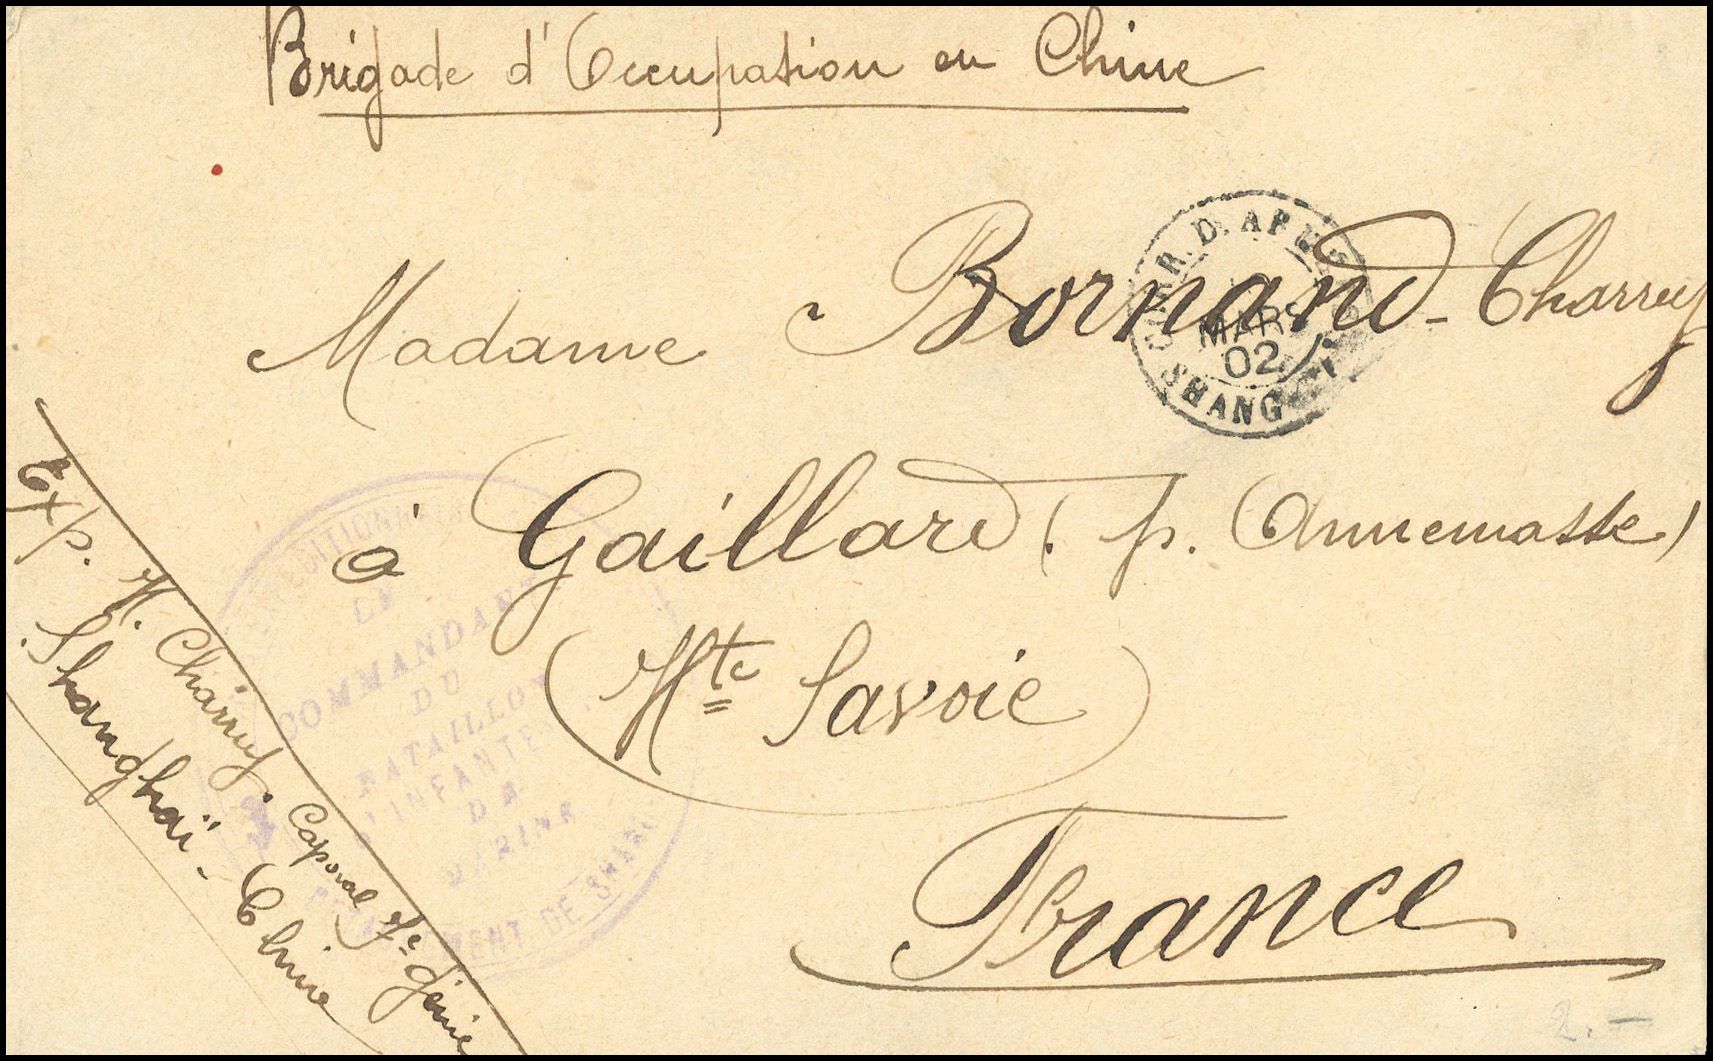 Brigade d'Occupation en Chine
Madame Bornand-Charruy
à Gaillard (p. Annemasse)
(Hte Savoie)
France
Exp. M. Charruy. Caporal 7e Génie
Shanghaï - Chine
CORR. D. ARMÉES
MARS
02
SHANG
LE
COMMANDANT
DU
BATAILLON
D'INFANTERIE
DE
MARINE
DE SHANG
2.-